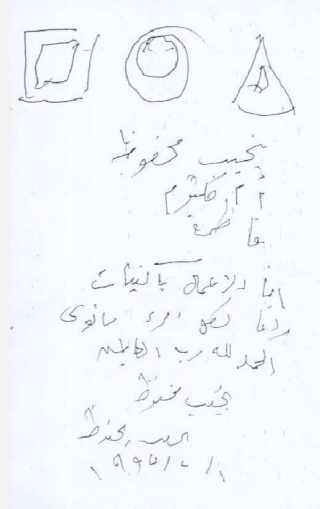 نجيب محفوظ
أم كلثوم
فاطمة
إنما الأعمال بالنيات
وإنما لكل امرء ما نوى
الحمد لله رب العالمين
نجيب محفوظ
محفوظ